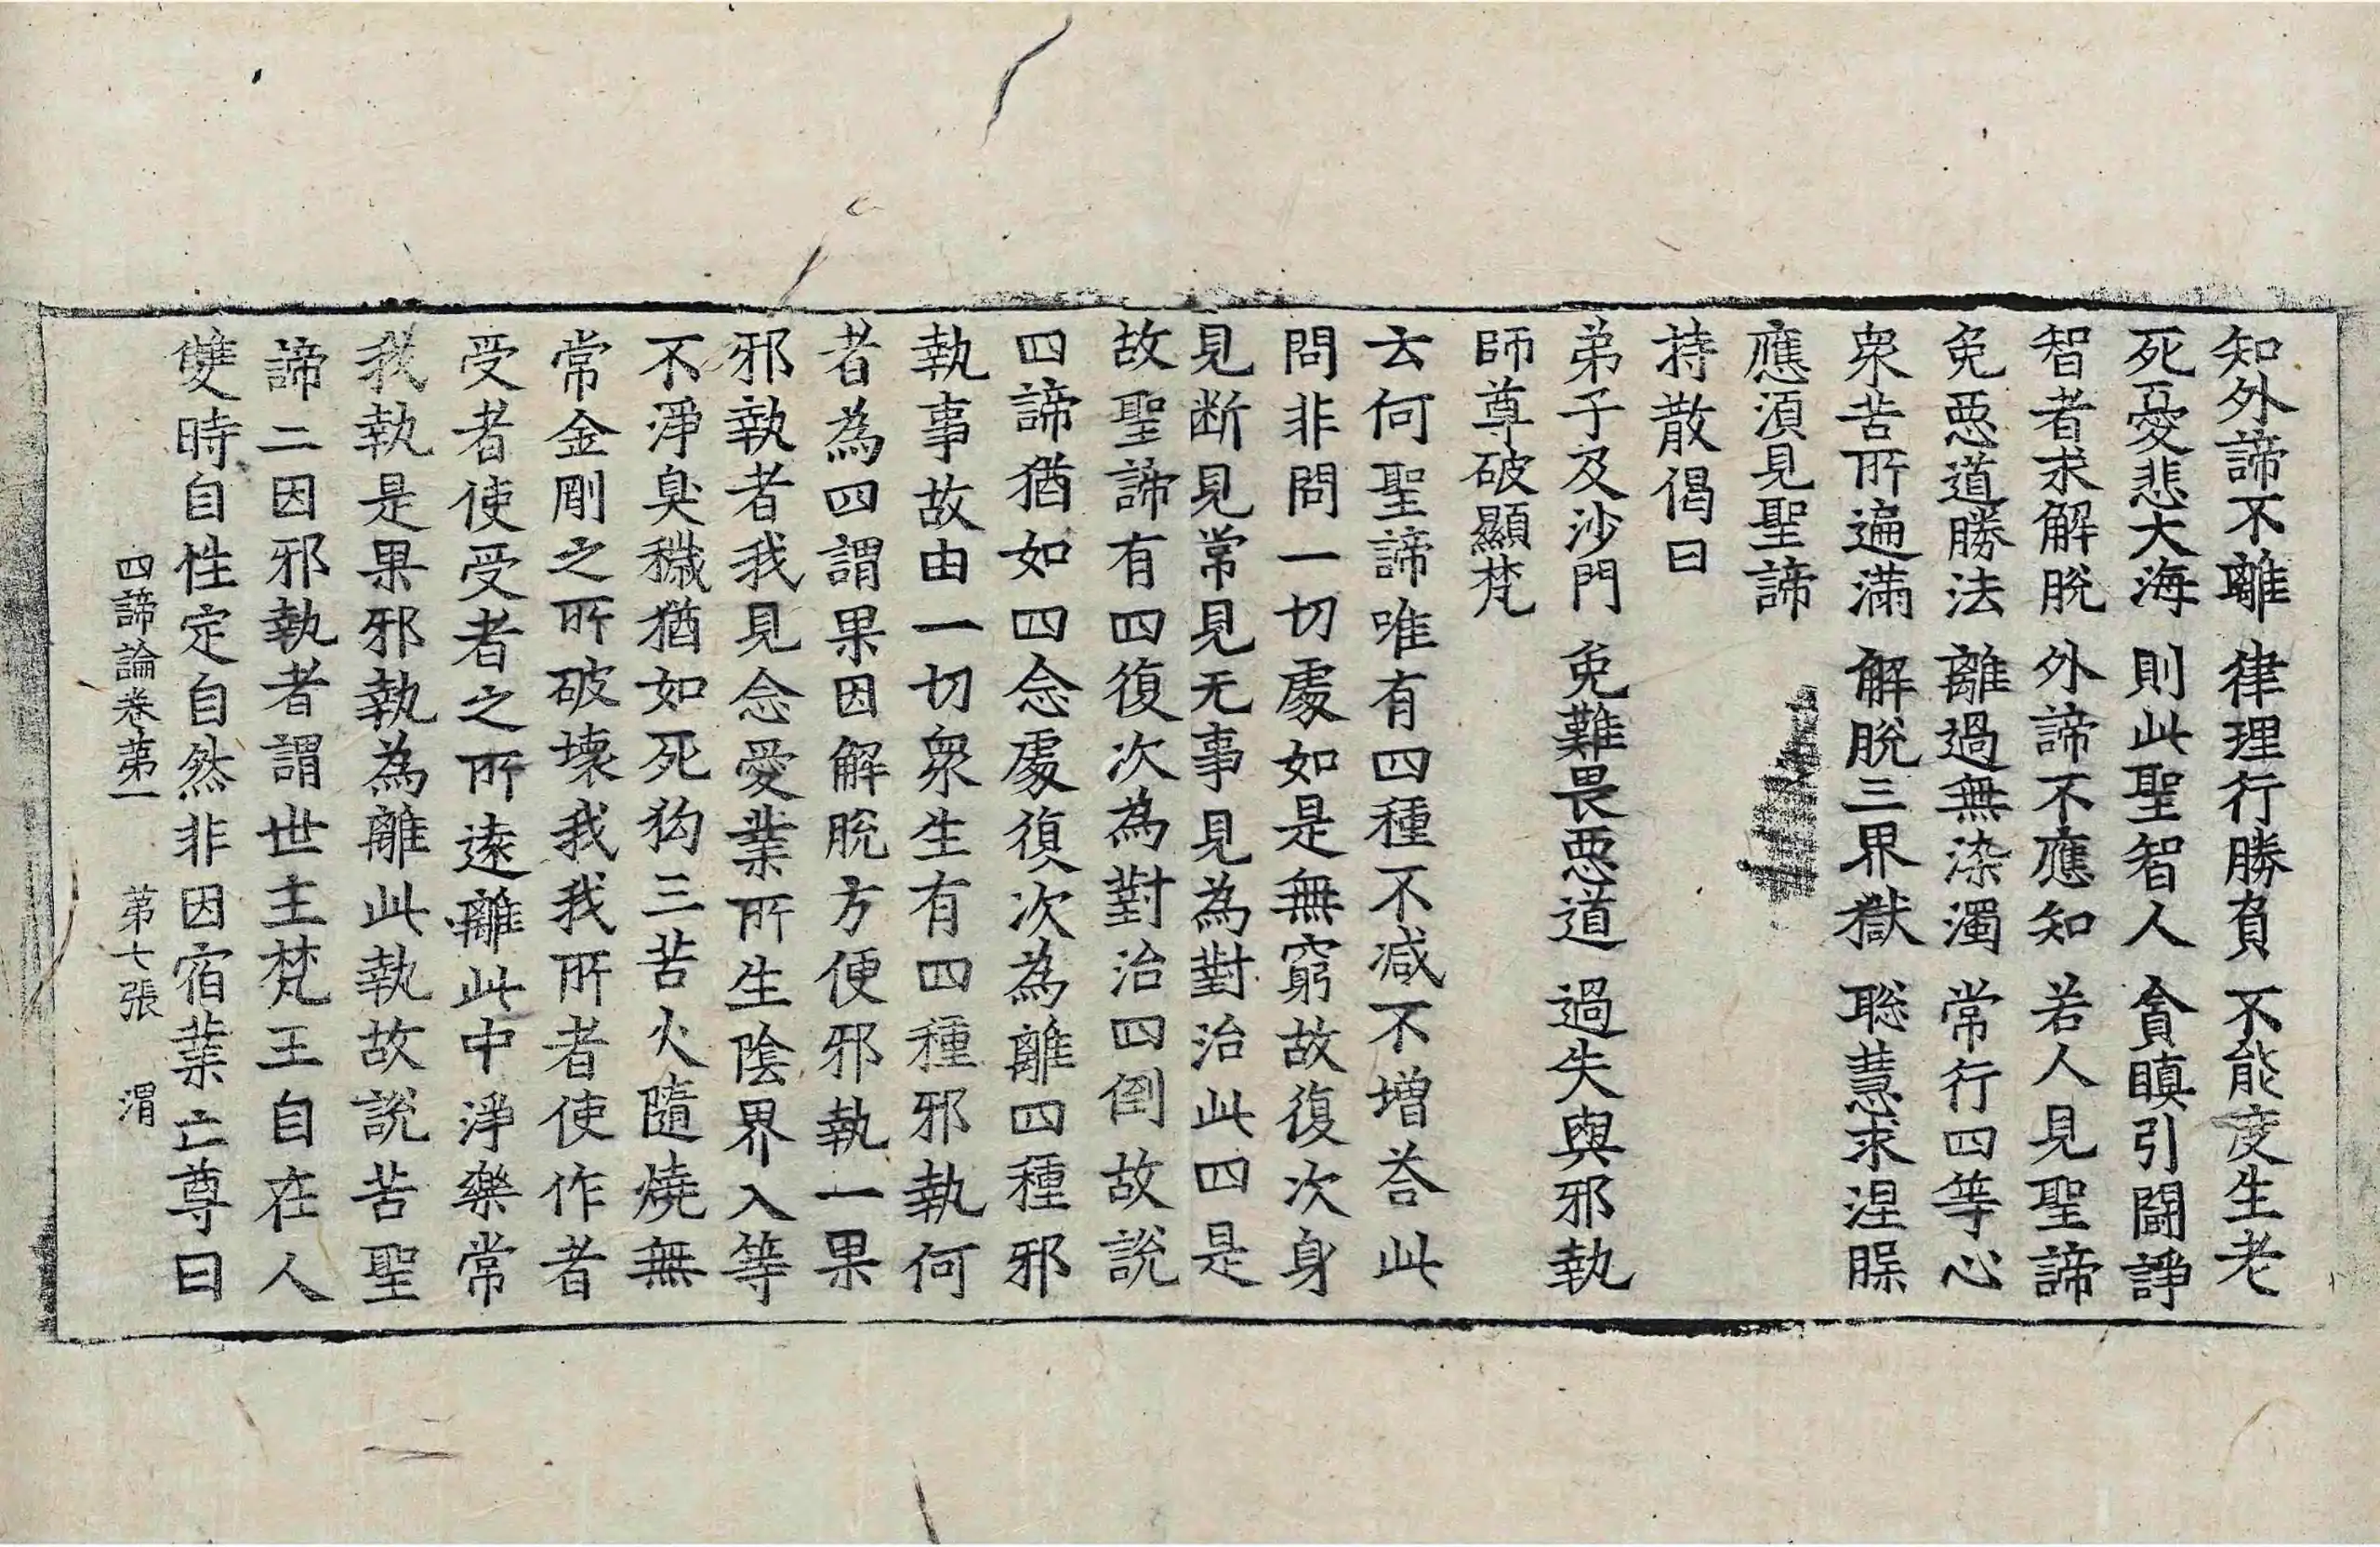 知外諦不離　律理行勝負　不能度生老
死憂悲大海　則此聖智人　貪瞋引鬪諍
智者求解脫　外諦不應知　若人見聖諦
免惡道勝法　離過無染濁　常行四等心
衆苦所遍滿　解脫三界獄　聡慧求涅槃
應湏見聖諦
持散偈曰
弟子及沙門　免難畏惡道　過失與邪執
師尊破顯梵
云何聖諦唯有四種不減不增荅此
問非問一切處如是無窮故復次身
見断見常見无事見為對治此四是
故聖諦有四復次為對治四倒故說
四諦猶如四念處復次為離四種邪
執事故由一切衆生有四種邪執何
者為四謂果因解脫方便邪執一果
邪執者我見念愛業所生陰界入等
不淨臭穢猶如死狗三苦火隨燒無
常金剛之所破壞我我所者使作者
受者使受者之所遠離此中淨樂常
我執是果邪執為離此執故說苦聖
諦二因邪執者謂世主梵王自在人
雙時自性定自然非因宿業亡尊曰
四諦論卷第一　第七張　渭